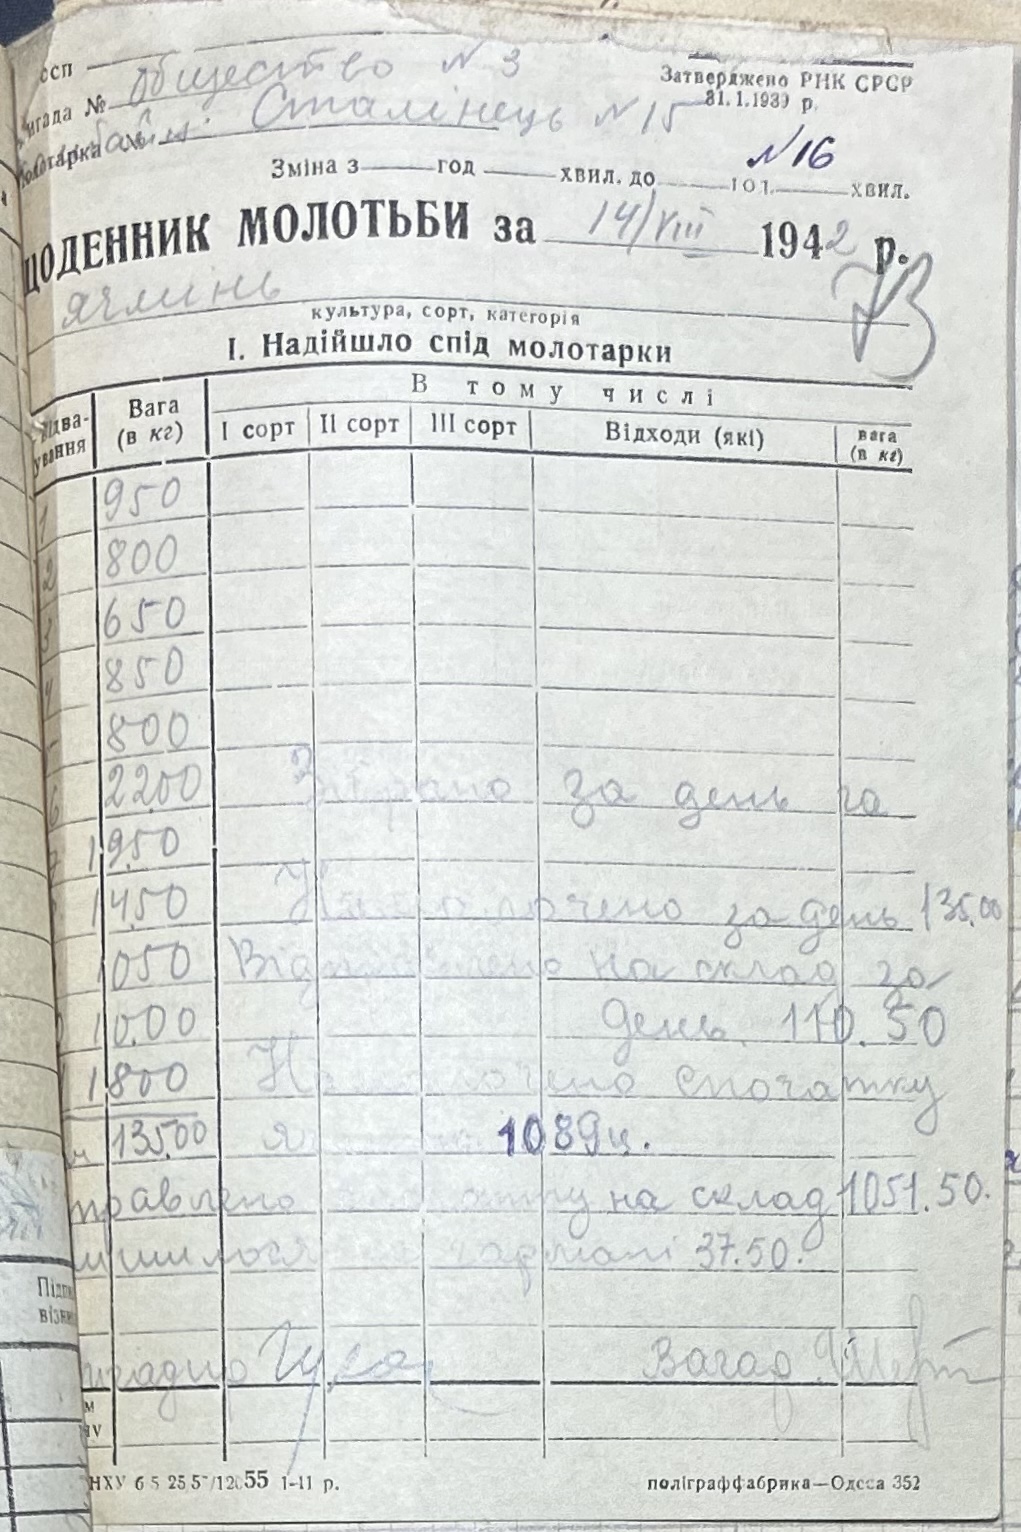 осп
Общество N 3
Затверджено РНК СРСР
31.1.1939 р.
игада №
Сталінець N 15
молотарка №
N 16
Зміна з год хвил. до год. хвил.
ЩОДЕННИК МОЛОТЬБИ за 14/VIII 1942 р.
ячмінь
культура, сорт, категорія
I. Надійшло спід молотарки
Відва-
ування
Вага
(в кг)
В тому числі
I сорт II сорт III сорт Відходи (які) вага
(в кг)
1 950
2 800
3 650
4 850
800
6 2200 Зібрано за день га
7 1950
1450 Намолочено за день 135,00
1050 Відправлено на склад за
1000 день 110.50
1800 Намолочено спочатку
135,00 1089 ц.
правлено на склад 1051.50.
лишилося гармані 37.50.
Підпи
візни
игадир Вагар
м
НХУ 6 5 25 5 /12055 1–11 р. поліграффабрика—Одеса 352